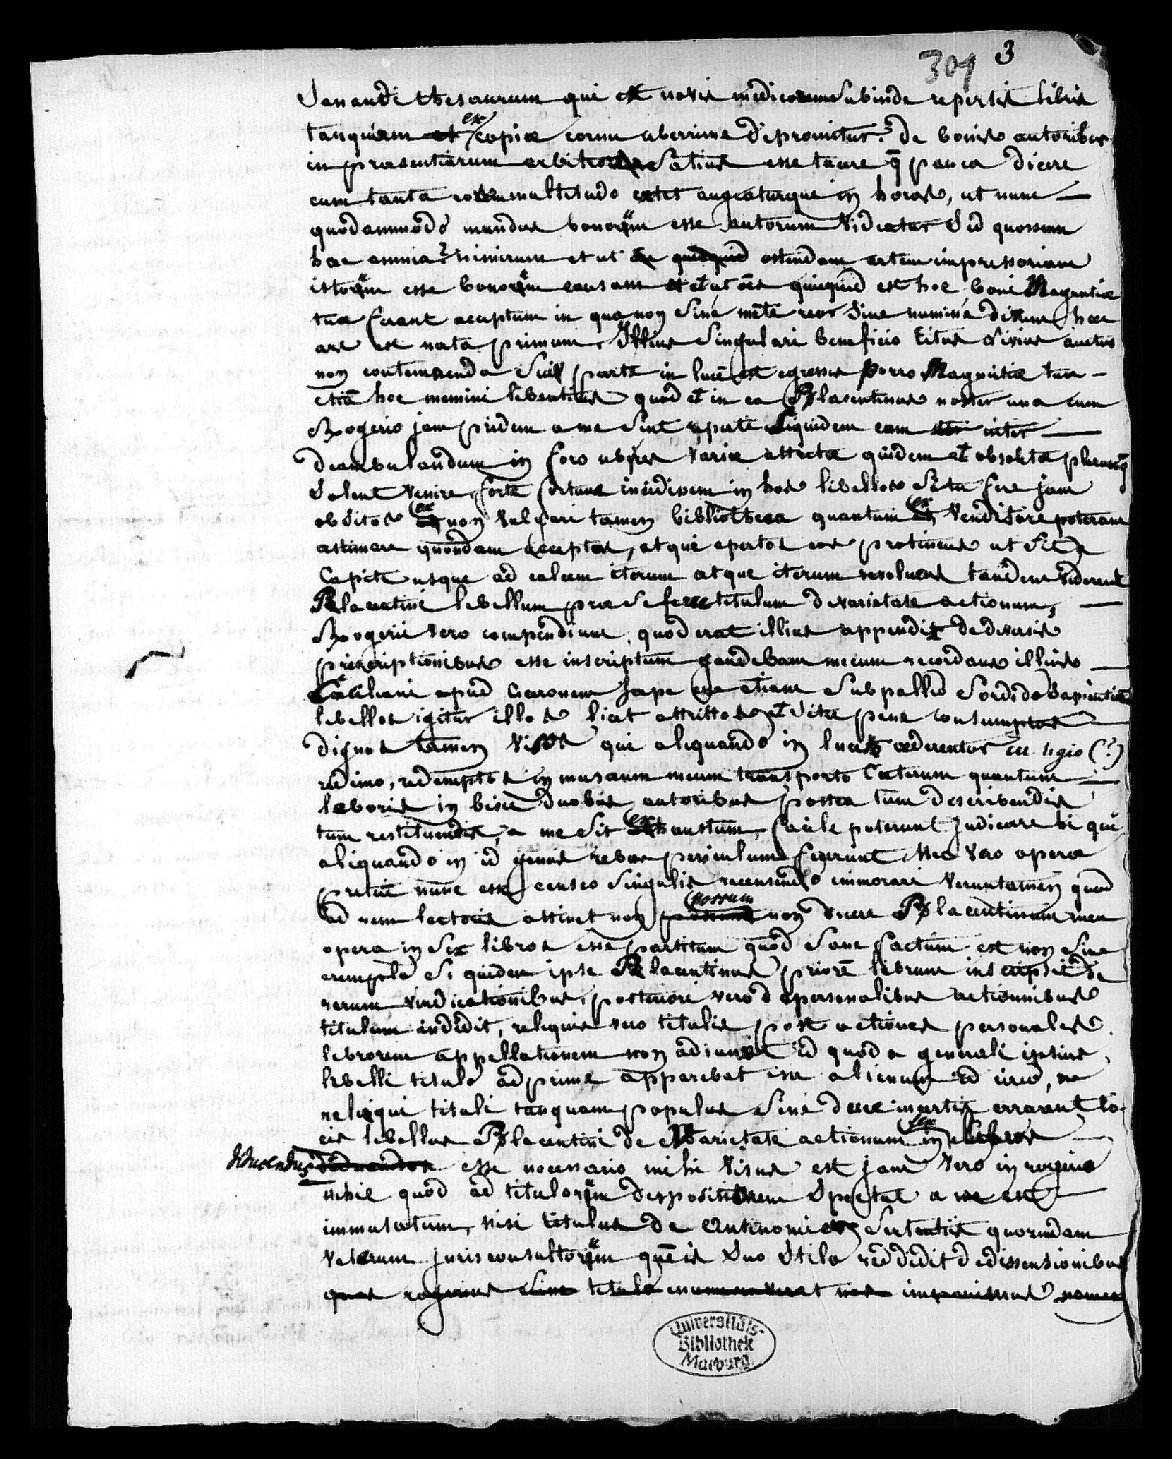 301 3
sanandi thesaurum qui ex novis medicorum subinde repertis libris
tanquam ex copiæ cornu uberrime depromitur? de bonis autoribus
in præsentiarum arbitror satius esse tacere q̄ pauca dicere
cum tanta eorum multitudo extet augeaturque in horas, ut nunc
quodammodo mundus bonorum esse autorum videatur Sed quorsum
hæc omnia? nimirum et ut ostendam artem impressoriam
istorum esse bonorum causam et ut oēs quicquid est hoc boni Maguntiæ
tuæ ferant acceptum in qua non sine mēte reor sine numine divum hæc
ars est nata primum. Illius singulari beneficio titus Livius auctus
non contemnenda sui parte in lucē est egressus Porro Maguntiæ tuæ
etiā hoc memini libentius quod et in ea Placentinus noster una cum
Rogerio jam pridem a me sint reperti Siquidem cum inter
deambulandum in foro ubi res variæ attritæ quidem et obsoletæ plerumq
solent venire, forte fortuna inciderem in hos libellos situ fere jam
obsitos ex non vulgari tamen bibliotheca quantum ex venditore poteram
æstimare quondam acceptos, atque apertos eos protinus ut fit a
capite usque ad calcem iterum atque iterum revoluens tandem viderem
Placentini libellum præ se ferre titulum de varietate actionum,
Rogerii vero compendium, quod erat illius appendix de diversis
præscriptionibus esse inscriptum gaudebam mecum recordans illius
Cæciliani apud Ciceronem sæpe est etiam sub pallio sordido sapientia
libellos igitur illos licet attritos et situ pene consumptos
dignos tamen visos qui aliquando in lucem ederentur
redimo, redemptos in musæum meum transporto Cæterum quantum
laboris in hisce duobus autoribus postea tum describendis
tum restituendis, a me sit exhaustum facile poterunt judicare hi qui
aliquando in id genus rebus periculum fecerunt Meæ vero operæ
pretium nunc esse censeo singulis recensendo immorari Veruntamen quod
ad rem lectoris attinet non possum non dicere Placentinum mea
opera in sex libros esse partitum quod sane factum est non sine
exemplo Si quidem ipse Placentinus priorē librum inscripsit de
rerum vindicationibus, posteriori vero de personalibus actionibus
titulum indidit, reliquis vero titulis post actiones personales
librorum appellationem non adiunxit id quod a generali ipsius
libelli titulo adprime apparebat esse alienum Id circo, ne
reliqui tituli tanquam populus sine duce incertis errarent lo-
cis libellus Placentini de Varietate actionum in sex libros
ducendus esse necessario mihi visus est jam vero in rogerio
nihil quod ad titulorum dispositionem spectat a me est
immutatum, nisi titulus de Antinomiis sententiis quorundam
veterum jurisconsultorum quē is suo stilo reddidit de dissensionibus
Universitäts-
Bibliothek
Marburg